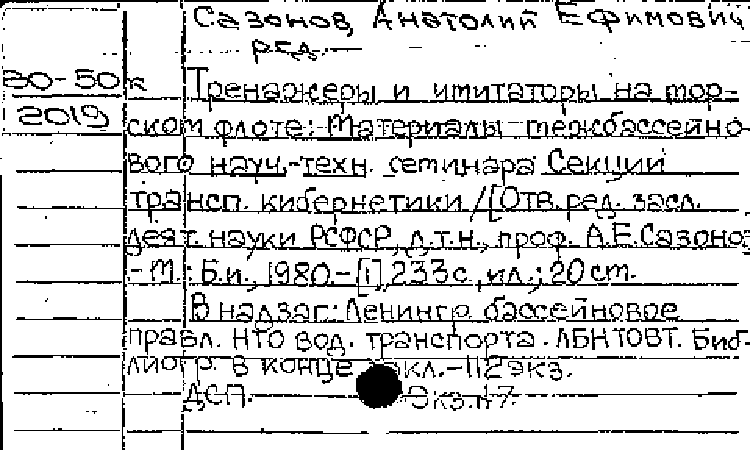 Сазонов, Анатолий Ефимович
ред.
30-50к
2019
Тренажеры и имитаторы на мор-
ском флоте: Материалы межбассейно-
вого науч.-техн. семинара Секции
трансп. кибернетики /[Отв. ред. засл.
деят. науки РСФСР, д.т.н., проф. А.Е. Сазонов
- М.: Б.и., 1980.-[1], 233с., ил.; 20 см.
В надзаг.: Ленингр. бассейновое
правл. НТО вод. транспорта. ЛБНТОВТ. Биб-
лиогр. в конце докл.-112экз.
ДСП. Экз.